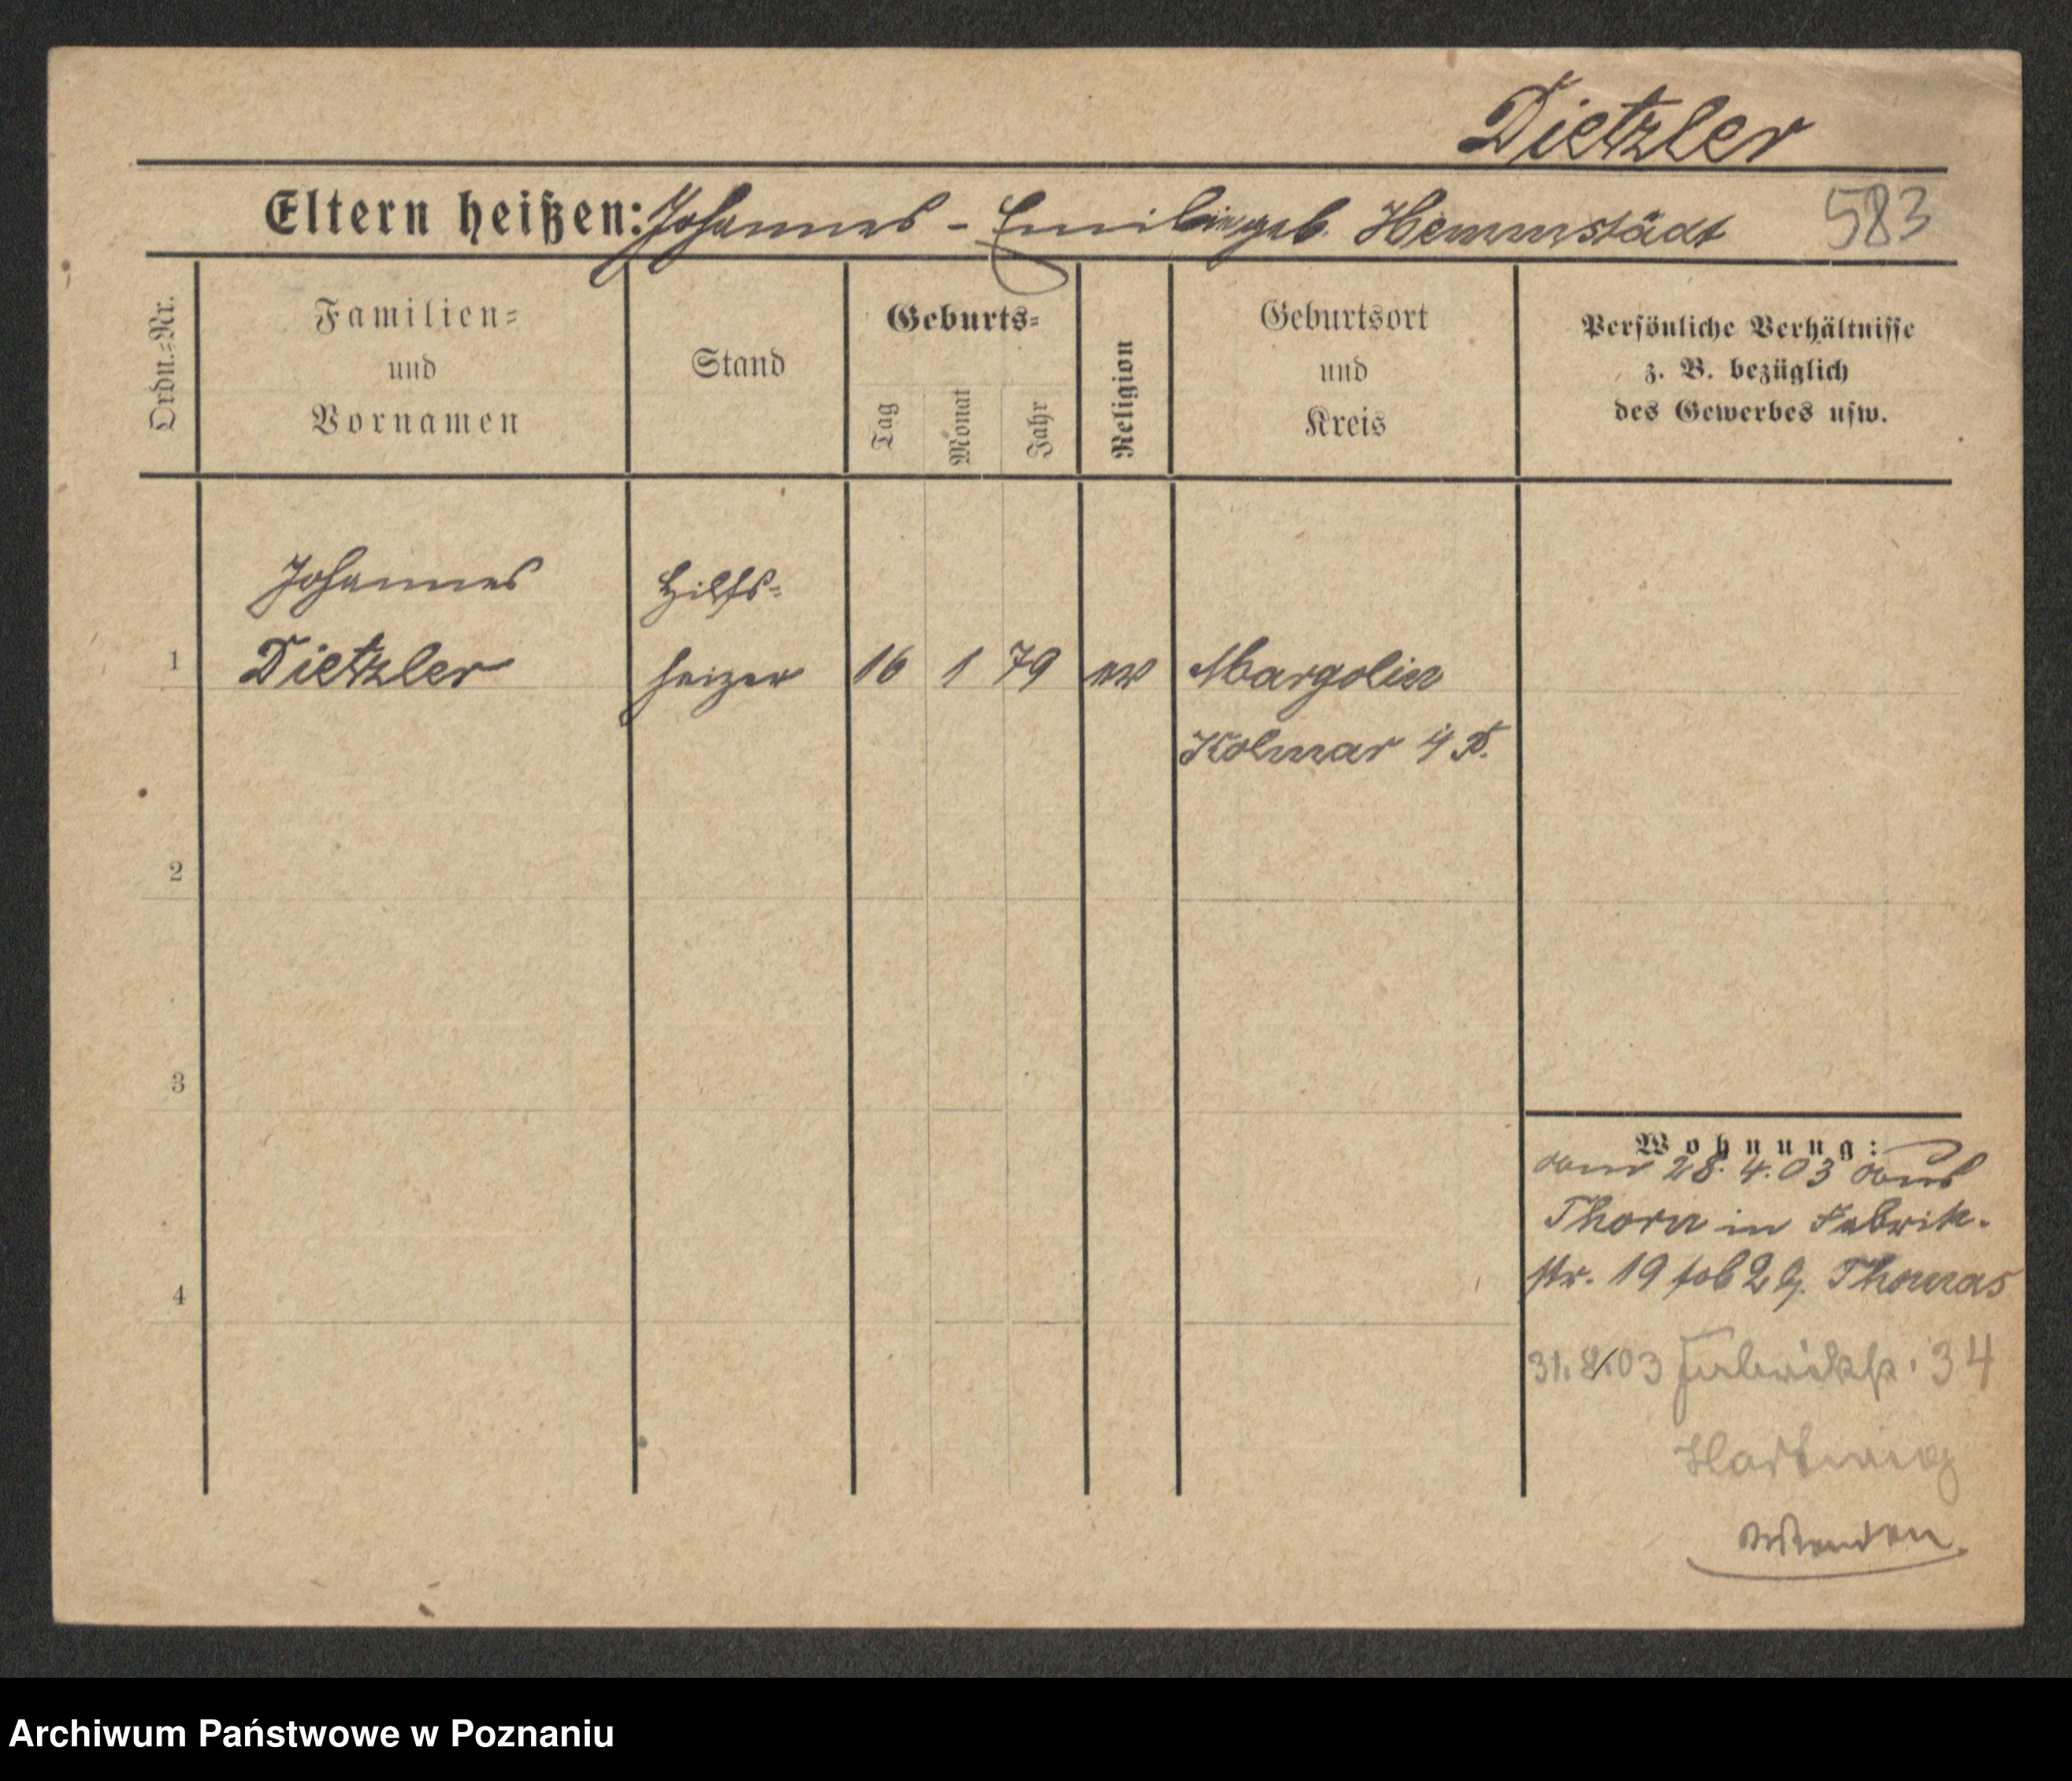 Dietzler
Eltern heißen: Johannes - Emilie geb. Hemmstädt 583
Ordn.=Nr.
Familien=
und
Vornamen
Stand
Geburts=
Tag
Monat
Jahr
Religion
Geburtsort
und
Kreis
Persönliche Verhältnisse
z. B. bezüglich
des Gewerbes usw.
Johannes
Dietzler
Hilfs=
heizer
1
16 1 79 ev
Margolin
Kolmar i/P.
2
3
4
Wohnung:
am 28.4.03 aus
Thorn in Fabrik-
str. 19 Thomas
31.8.03 Fabrikstr. 34
Hartwig
wenden
Archiwum Państwowe w Poznaniu